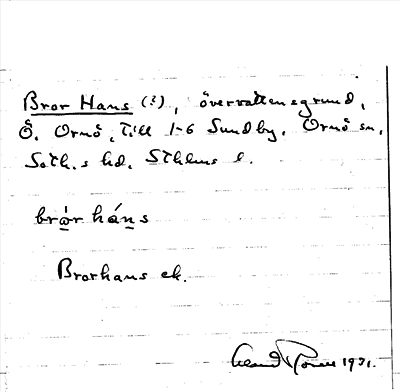 Bror Hans (?), övervattensgrund,
Ö. Ornö, till 1-6 Sundby. Ornö sn,
Soth.s hd. Sthlms l.
brȧ̀r háns
Brorhans ek.
1931.